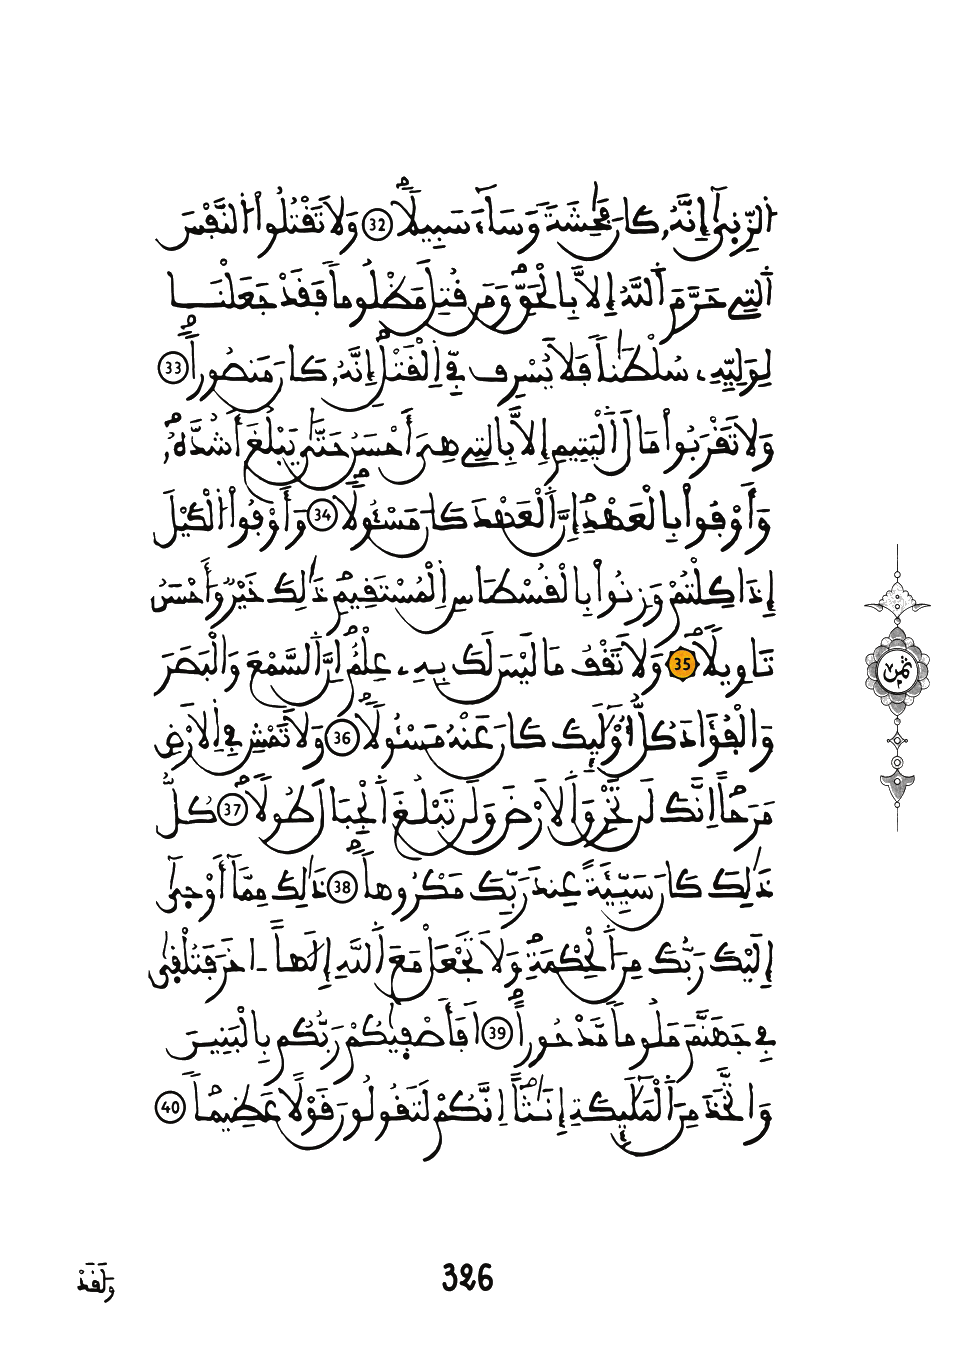 اَ۬لزِّن۪ىٰٓ إِنَّهُۥ كَانَ فَٰحِشَةٗ وَسَآءَ سَبِيلاٗۖ 32 وَلَا تَقْتُلُواْ اُ۬لنَّفْسَ
اَ۬لتِے حَرَّمَ اَ۬للَّهُ إِلَّا بِالْحَقِّۖ وَمَن قُتِلَ مَظْلُوماٗ فَقَدْ جَعَلْنَا
لِوَلِيِّهِۦ سُلْطَٰناٗ فَلَا يُسْرِف فِّے اِ۬لْقَتْلِۖ إِنَّهُۥ كَانَ مَنصُوراٗۖ 33
وَلَا تَقْرَبُواْ مَالَ اَ۬لْيَتِيمِ إِلَّا بِالتِے هِيَ أَحْسَنُ حَتَّىٰ يَبْلُغَ أَشُدَّهُۥۖ
وَأَوْفُواْ بِالْعَهْدِۖ إِنَّ اَ۬لْعَهْدَ كَانَ مَسْـُٔولاٗۖ 34 وَأَوْفُواْ اُ۬لْكَيْلَ
إِذَا كِلْتُمْ وَزِنُواْ بِالْقُسْطَاسِ اِ۬لْمُسْتَقِيمِۖ ذَٰلِكَ خَيْرٞ وَأَحْسَنُ
تَاوِيلاٗۖ 35 وَلَا تَقْفُ مَا لَيْسَ لَكَ بِهِۦ عِلْمٌۖ اِنَّ اَ۬لسَّمْعَ وَالْبَصَرَ
وَالْفُؤَادَ كُلُّ أُوْلَٰٓئِكَ كَانَ عَنْهُ مَسْـُٔولاٗۖ 36 وَلَا تَمْشِ فِے اِ۬لَارْضِ
مَرَحاًۖ اِنَّكَ لَن تَخْرِقَ اَ۬لَارْضَ وَلَن تَبْلُغَ اَ۬لْجِبَالَ طُولاٗۖ 37 كُلُّ
ذَٰلِكَ كَانَ سَيِّئَةً عِندَ رَبِّكَ مَكْرُوهاٗۖ 38 ذَٰلِكَ مِمَّآ أَوْح۪ىٰٓ
إِلَيْكَ رَبُّكَ مِنَ اَ۬لْحِكْمَةِۖ وَلَا تَجْعَلْ مَعَ اَ۬للَّهِ إِلَٰهاً اٰخَرَ فَتُلْق۪ىٰ
فِے جَهَنَّمَ مَلُوماٗ مَّدْحُوراًۖ 39 اَفَأَصْف۪يٰكُمْ رَبُّكُم بِالْبَنِينَ
وَاتَّخَذَ مِنَ اَ۬لْمَلَٰٓئِكَةِ إِنَٰثاًۖ اِنَّكُمْ لَتَقُولُونَ قَوْلاً عَظِيماٗۖ 40
ثمن
326
وَلَقَدْ